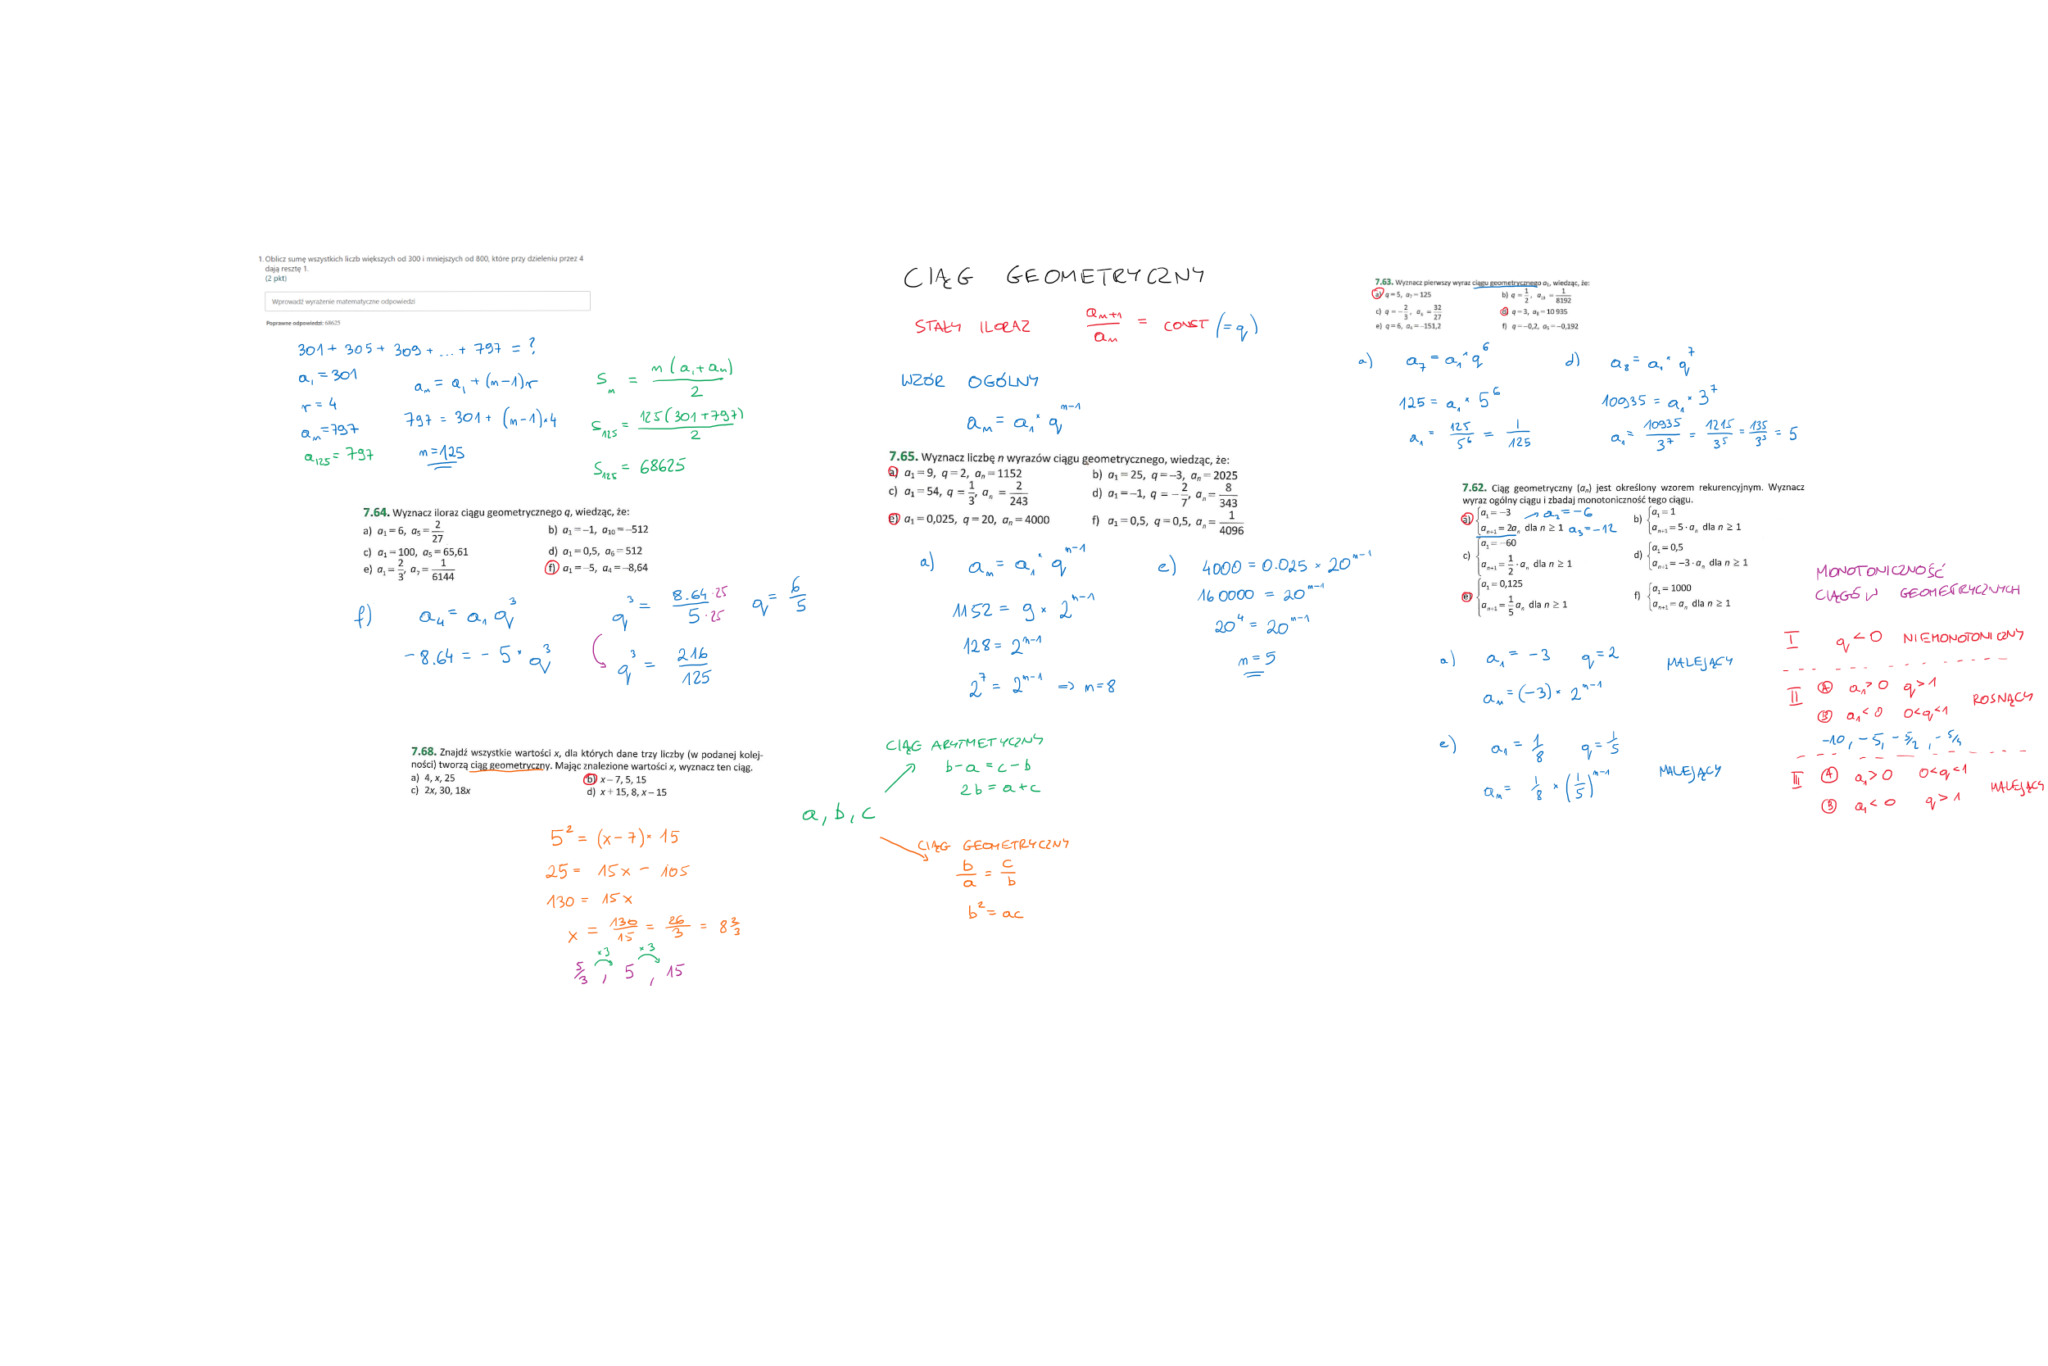 1. Oblicz sumę wszystkich liczb większych od 300 i mniejszych od 800, które przy dzieleniu przez 4
dają resztę 1.
(2 pkt)
Wprowadź wyrażenie matematyczne odpowiedzi
Poprawne odpowiedzi: 68625
301 + 305 + 309 + ... + 797 = ?
a₁ = 301
r = 4
aₙ = 797
a₁₂₅ = 797
aₙ = a₁ + (n-1)r
797 = 301 + (n-1)·4
n = 125
Sₙ = n(a₁+aₙ)/2
S₁₂₅ = 125(301+797)/2
S₁₂₅ = 68625
7.64. Wyznacz iloraz ciągu geometrycznego q, wiedząc, że:
a) a₁ = 6, a₅ = 2/27
b) a₁ = -1, a₁₀ = -512
c) a₁ = 100, a₅ = 65,61
d) a₁ = 0,5, a₆ = 512
e) a₁ = 2/3, a₇ = 1/6144
f) a₁ = -5, a₄ = -8,64
f) a₄ = a₁q³
-8.64 = -5·q³
q³ = 8.64·25/5·25
q³ = 216/125
q = 6/5
7.68. Znajdź wszystkie wartości x, dla których dane trzy liczby (w podanej kolej-
ności) tworzą ciąg geometryczny. Mając znalezione wartości x, wyznacz ten ciąg.
a) 4, x, 25
b) x - 7, 5, 15
c) 2x, 30, 18x
d) x + 15, 8, x - 15
5² = (x-7)·15
25 = 15x - 105
130 = 15x
x = 130/15 = 26/3 = 8 2/3
·3 ·3
5/3, 5, 15
CIĄG GEOMETRYCZNY
STAŁY ILORAZ aₙ₊₁/aₙ = CONST (=q)
WZÓR OGÓLNY
aₙ = a₁·qⁿ⁻¹
7.65. Wyznacz liczbę n wyrazów ciągu geometrycznego, wiedząc, że:
a) a₁ = 9, q = 2, aₙ = 1152
b) a₁ = 25, q = -3, aₙ = 2025
c) a₁ = 54, q = 1/3, aₙ = 2/243
d) a₁ = -1, q = -2/7, aₙ = 8/343
e) a₁ = 0,025, q = 20, aₙ = 4000
f) a₁ = 0,5, q = 0,5, aₙ = 1/4096
a) aₙ = a₁·qⁿ⁻¹
1152 = 9·2ⁿ⁻¹
128 = 2ⁿ⁻¹
2⁷ = 2ⁿ⁻¹ => n=8
e) 4000 = 0.025·20ⁿ⁻¹
160000 = 20ⁿ⁻¹
20⁴ = 20ⁿ⁻¹
n = 5
a, b, c
CIĄG ARYTMETYCZNY
b-a = c-b
2b = a+c
CIĄG GEOMETRYCZNY
b/a = c/b
b² = ac
7.63. Wyznacz pierwszy wyraz ciągu geometrycznego a₁, wiedząc, że:
a) q = 5, a₇ = 125
c) q = -2/3, a₆ = 32/27
d) q = 3, a₈ = 10 935
a) a₇ = a₁·q⁶
125 = a₁·5⁶
a₁ = 125/5⁶ = 1/125
d) a₈ = a₁·q⁷
10935 = a₁·3⁷
a₁ = 10935/3⁷ = 1215/3⁵ = 135/3³ = 5
7.62. Ciąg geometryczny (aₙ) jest określony wzorem rekurencyjnym. Wyznacz
wyraz ogólny ciągu i zbadaj monotoniczność tego ciągu.
a) a₁ = -3 a₂ = -6
aₙ₊₁ = 2aₙ dla n ≥ 1 a₃ = -12
b) a₁ = 1
aₙ₊₁ = 5·aₙ dla n ≥ 1
c) a₁ = -60
aₙ₊₁ = 1/2·aₙ dla n ≥ 1
d) a₁ = 0,5
aₙ₊₁ = -3·aₙ dla n ≥ 1
e) a₁ = 0,125
aₙ₊₁ = 1/5 aₙ dla n ≥ 1
f) a₁ = 1000
aₙ₊₁ = aₙ dla n ≥ 1
a) a₁ = -3 q = 2 MALEJĄCY
aₙ = (-3)·2ⁿ⁻¹
e) a₁ = 1/8 q = 1/5
aₙ = 1/8·(1/5)ⁿ⁻¹ MALEJĄCY
MONOTONICZNOŚĆ
CIĄGÓW GEOMETRYCZNYCH
I q<0 NIEMONOTONICZNY
II A a₁>0 q>1 ROSNĄCY
B a₁<0 0<q<1
-10, -5, -5/2, -5/4
III A a₁>0 0<q<1 MALEJĄCY
B a₁<0 q>1